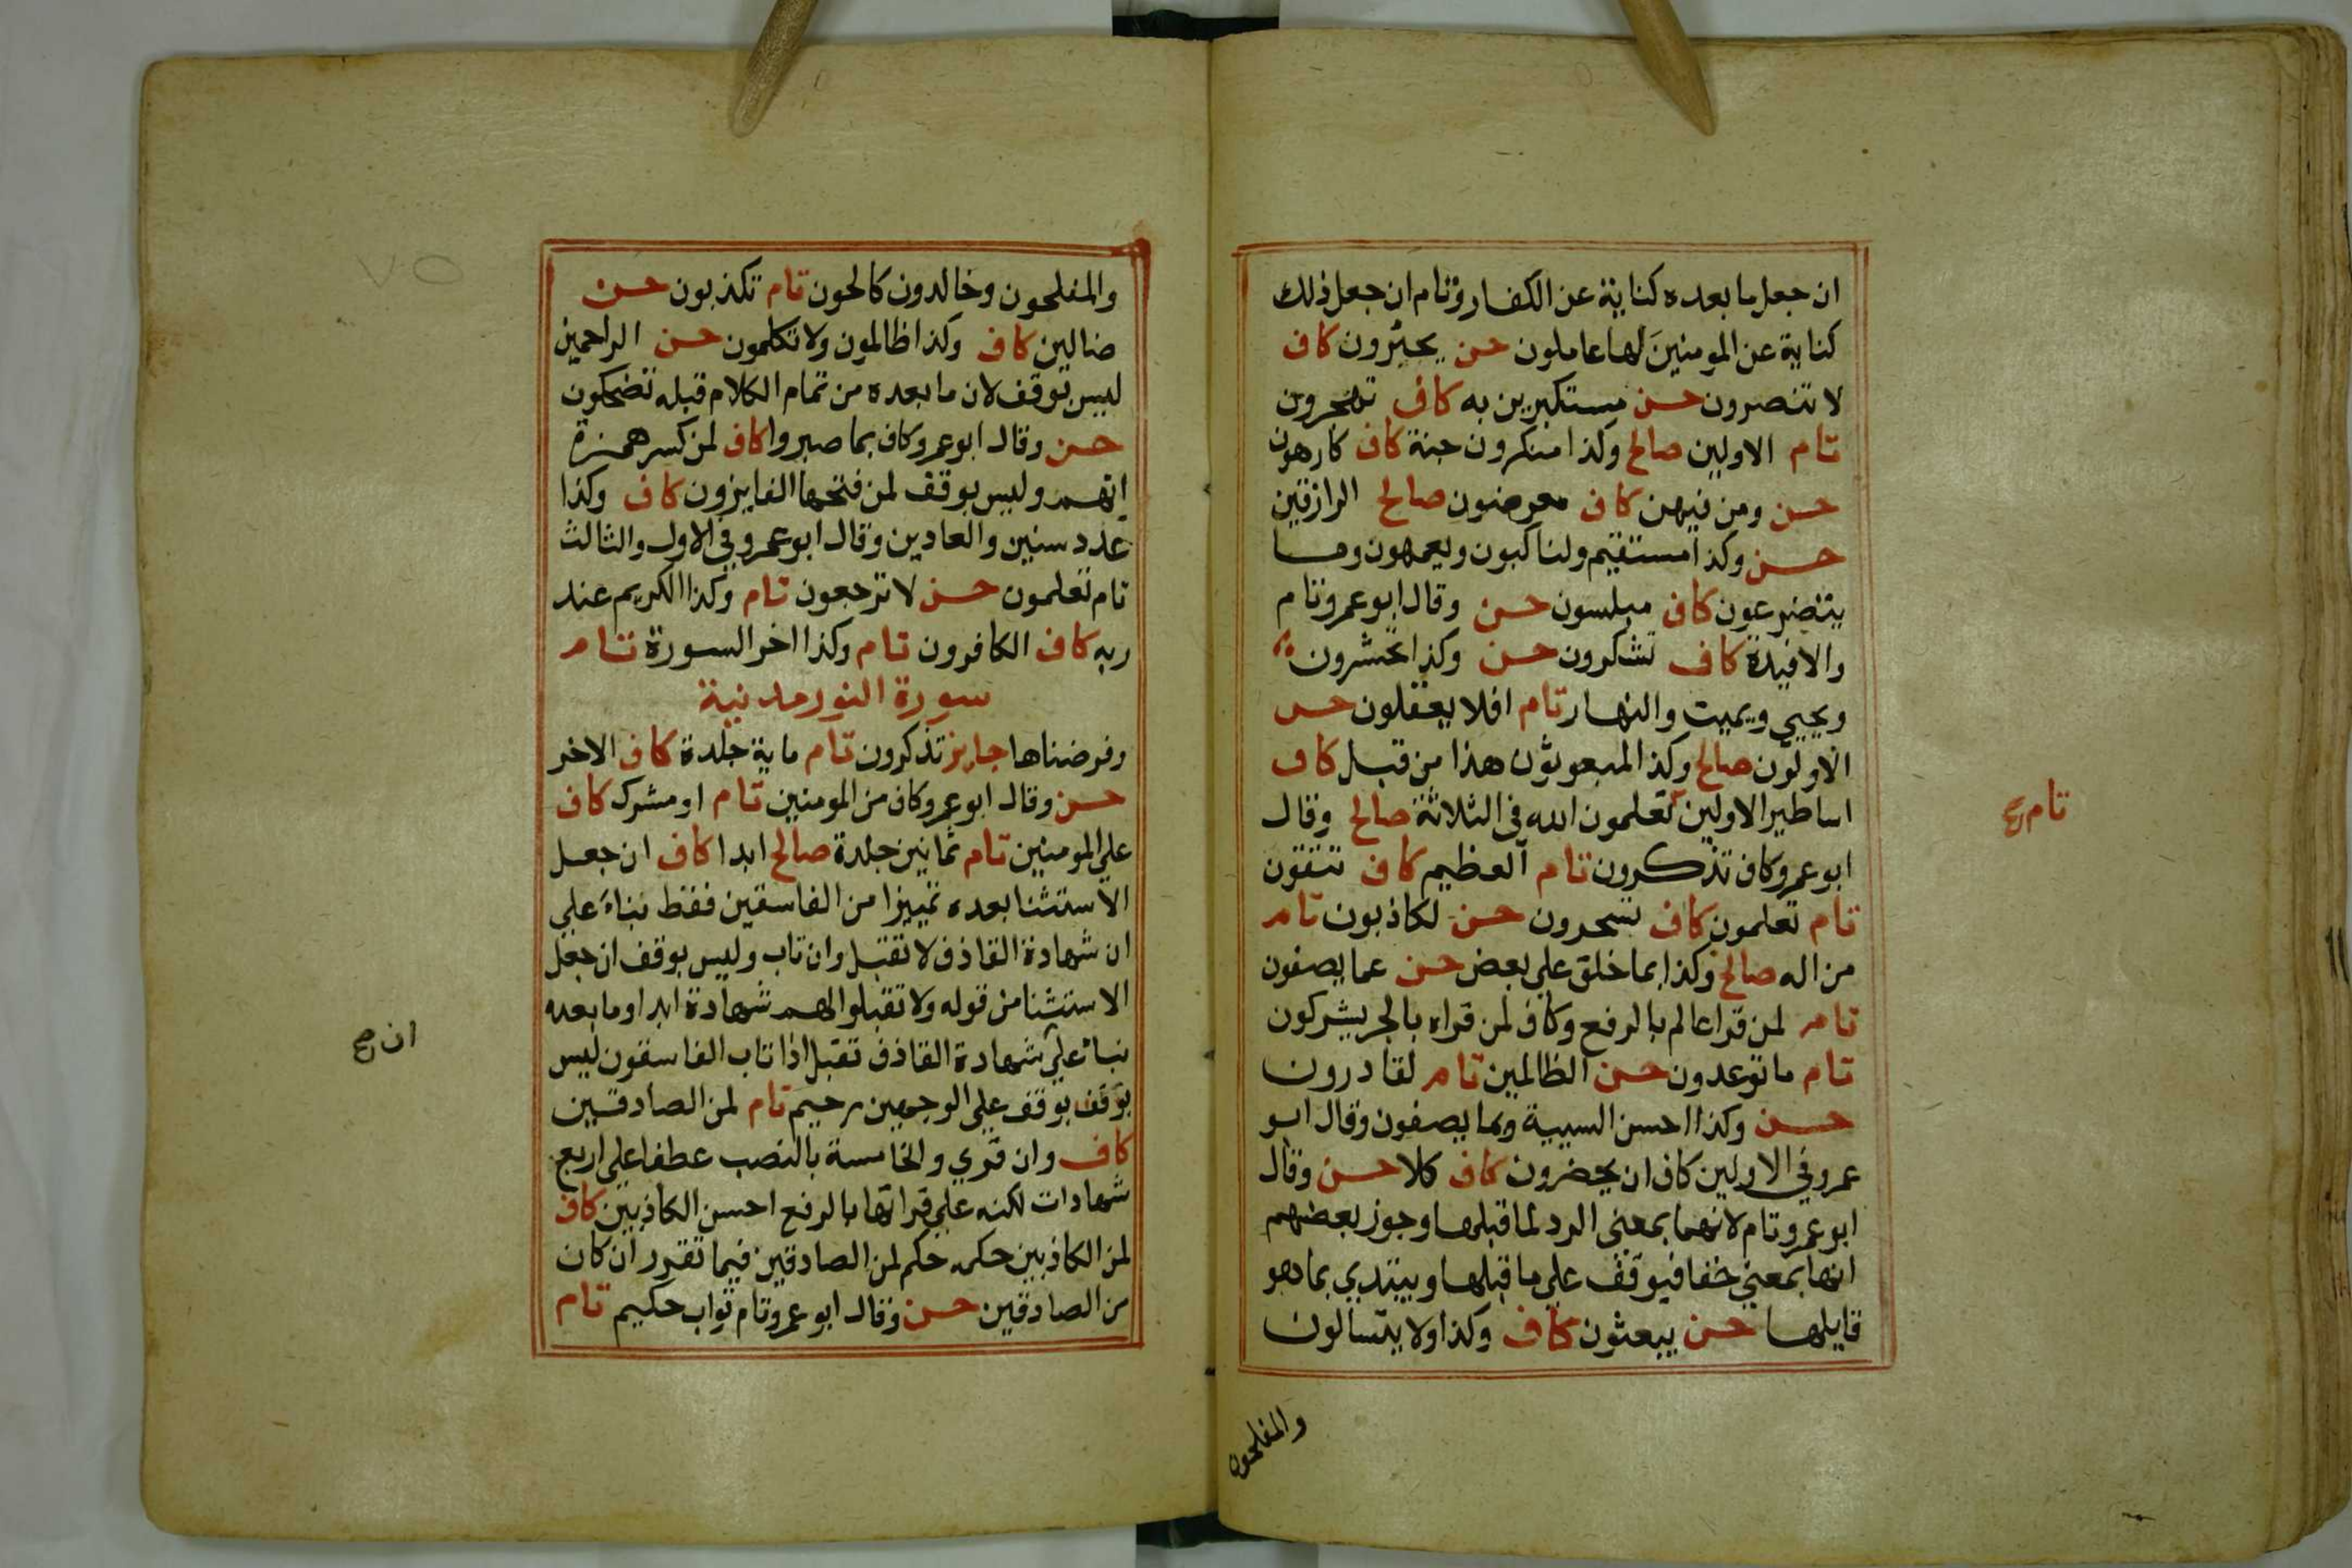 ان جعل ما بعده كناية عن الكفار وتام ان جعل ذلك
كناية عن المومنين لها عاملون حسن يجئرون كاف
لا تنصرون حسن مستكبرين به كاف تهجرون
تام الاولين صالح وكذا منكرون جنة كاف كارهون
حسن ومن فيهن كاف معرضون صالح الرازقين
حسن وكذا مستقيم ولناكبون ويعمهون وما
يتضرعون كاف مبلسون حسن وقال ابو عمرو تام
والافيدة كاف تشكرون حسن وكذا تحشرون
ويحيي ويميت والنهار تام افلا يعقلون حسن
الاولون صالح وكذا لمبعوثون هذا من قبل كاف
اساطير الاولين تعلمون الله في الثلاثة صالح وقال
ابو عمرو كاف تذكرون تام العظيم كاف تتقون
تام تعلمون كاف تسحرون حسن لكاذبون تام
من اله صالح وكذا بما خلق على بعض حسن عما يصفون
تام لمن قرا عالم بالرفع وكاف لمن قراه بالجر يشركون
تام ما توعدون حسن الظالمين تام لقادرون
حسن وكذا احسن السيية وبما يصفون وقال ابو
عمرو في الاولين كاف ان يحضرون كاف كلا حسن وقال
ابو عمرو تام لانهما بمعنى الرد لما قبلها وجوز بعضهم
انها بمعنى حقا فيوقف على ما قبلها ويبتدي بها وهو
قايلها حسن يبعثون كاف وكذا ولا يتسالون
والمفلحون
تام صح
والمفلحون وخالدون كالحون تام تكذبون حسن
ضالين كاف وكذا ظالمون ولا تكلمون حسن الراحمين
ليس بوقف لان ما بعده من تمام الكلام قبله تضحكون
حسن وقال ابو عمرو كاف بما صبروا كاف لمن كسر همزة
انهم وليس بوقف لمن فتحها الفايزون كاف وكذا
عدد سنين والعادين وقال ابو عمرو في الاول والثالث
تام تعلمون حسن لا ترجعون تام وكذا الكريم عند
ربه كاف الكافرون تام وكذا اخر السورة تام
سورة النور مدنية
وفرضناها جايز تذكرون تام ماية جلدة كاف الاخر
حسن وقال ابو عمرو كاف من المومنين تام او مشرك كاف
على المومنين تام ثمانين جلدة صالح ابدا كاف ان جعل
الاستثنا بعده تمييزا من الفاسقين فقط بناء على
ان شهادة القاذف لا تقبل وان تاب وليس بوقف ان جعل
الاستثنا من قوله ولا تقبلوا لهم شهادة ابدا وما بعده
بناء على شهادة القاذف تقبل اذا تاب الفاسقون ليس
بوقف بوقف على الوجهين رحيم تام لمن الصادقين
كاف وان قري والخامسة بالنصب عطفا على اربع
شهادات لكنه على قراتها بالرفع احسن الكاذبين كاف
لمن الكاذبين حكمه حكم لمن الصادقين فيما تقرر ان كان
من الصادقين حسن وقال ابو عمرو تام تواب حكيم تام
ان صح
٧٥